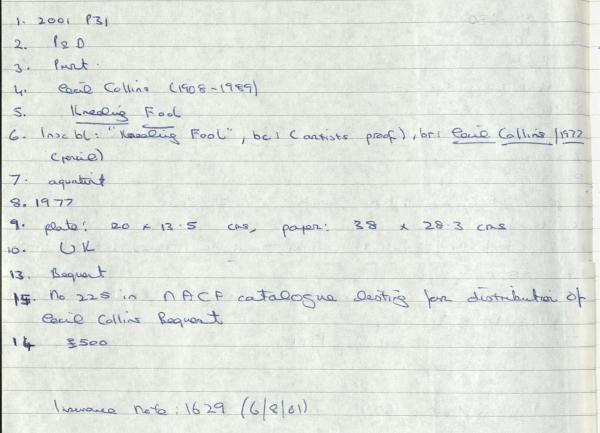 1. 2001 P31
2. P&D
3. Print.
4. Cecil Collins (1908-1989)
5. Kneeling Fool
6. Insc bl: "Kneeling Fool", bc: (artists proof), br: Cecil Collins /1977
(pencil)
7. aquatint
8. 1977
9. plate: 20 x 13.5 cms, paper: 38 x 28.3 cms
10. UK
13. Bequest
15. No 225 in NACF catalogue listing for distribution of
Cecil Collins Bequest
14 £500
Insurance Note: 1629 (6/8/01)